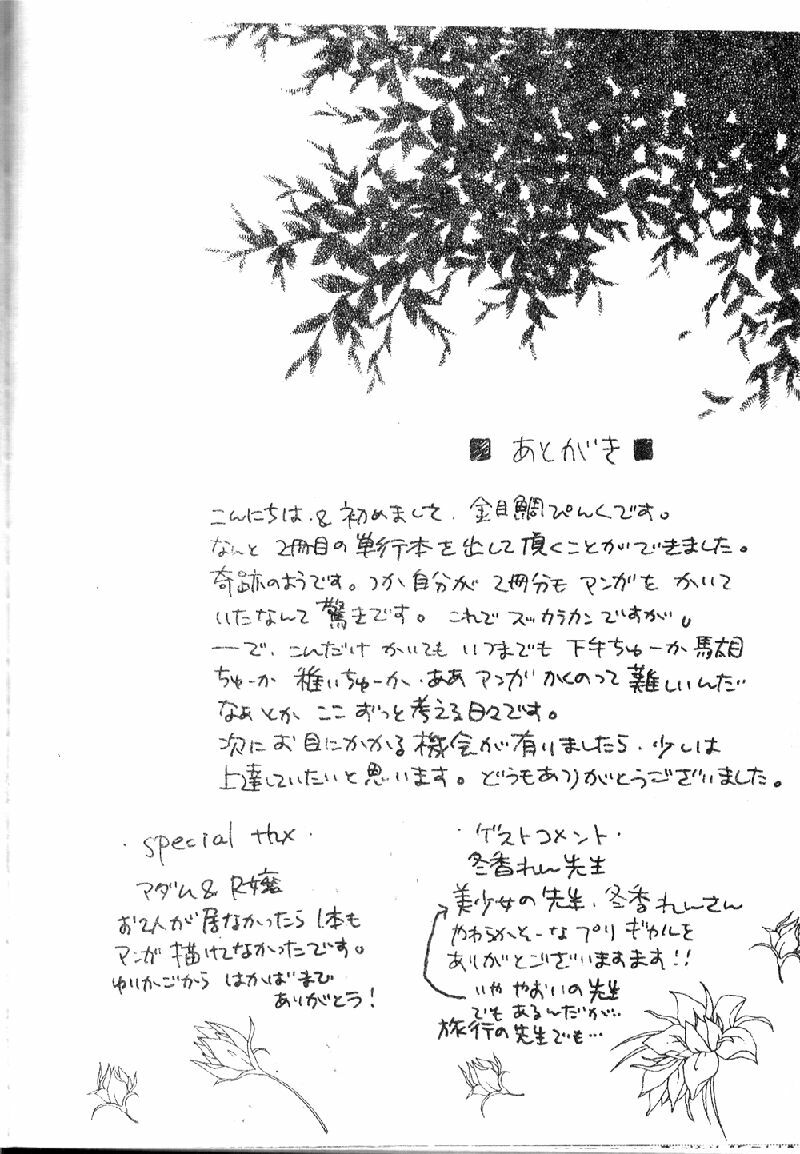 ■ あとがき ■
こんにちは & 初めまして、金目鯛ぴんくです。
なんと 2冊目の単行本を出して頂くことができました。
奇跡のようです。つか自分が 2冊分も マンガを かいて
いたなんて 驚きです。これで スッカラカンですが。
ーで、こんだけ かいても いつまでも 下手ちゅーか 駄目
ちゅーか 稚いちゅーか、ああ マンガ かくのって 難しいんだ
なぁ とか ここ ずっと 考える日々です。
次に お目にかかる 機会が 有りましたら、少しは
上達していたいと 思います。どうもありがとうございました。
・special thx・
マダム & R嬢
お2人が居なかったら 1本も
マンガ 描けてなかったです。
ゆりかごから はかばまで
ありがとう!
・ゲストコメント・
冬香れん先生
美少女の先生、冬香れんさん
やわらかそーな プリ ギャルを
ありがとございますます!!
いや やおいの先生
でも あるんだが…
旅行の先生でも…